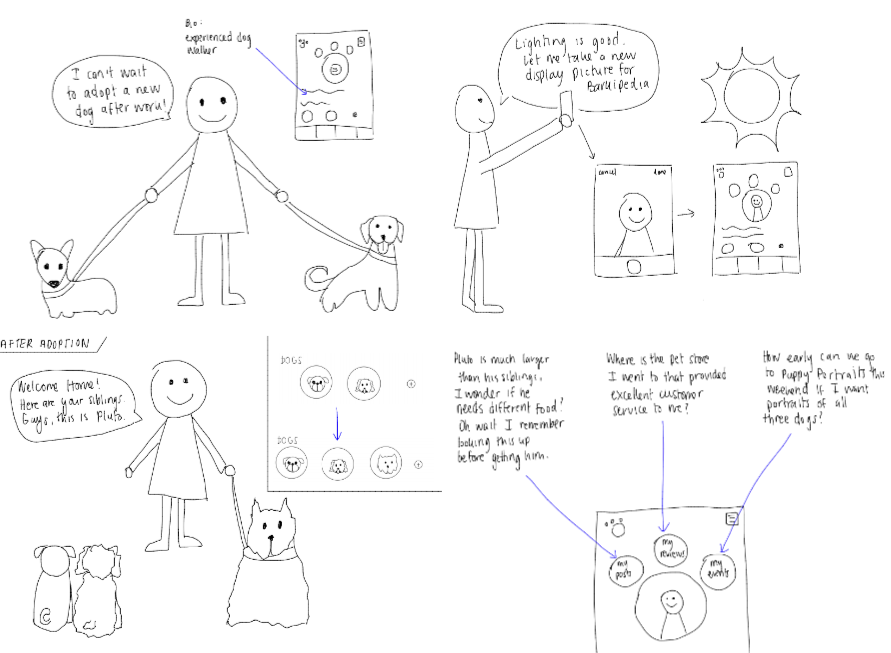 Bio:
experienced dog
walker
I can't wait
to adopt a new
dog after work!
Lighting is good.
Let me take a new
display picture for
Barkipedia
cancel done
AFTER ADOPTION
Welcome Home!
Here are your siblings
Guys, this is Pluto.
DOGS
DOGS
Pluto is much larger
than his siblings.
I wonder if he
needs different food?
Oh wait I remember
looking this up
before getting him.
Where is the pet store
I went to that provided
excellent customer
service to me?
How early can we go
to Puppy Portraits this
weekend if I want
portraits of all
three dogs?
my
posts
my
reviews
my
events